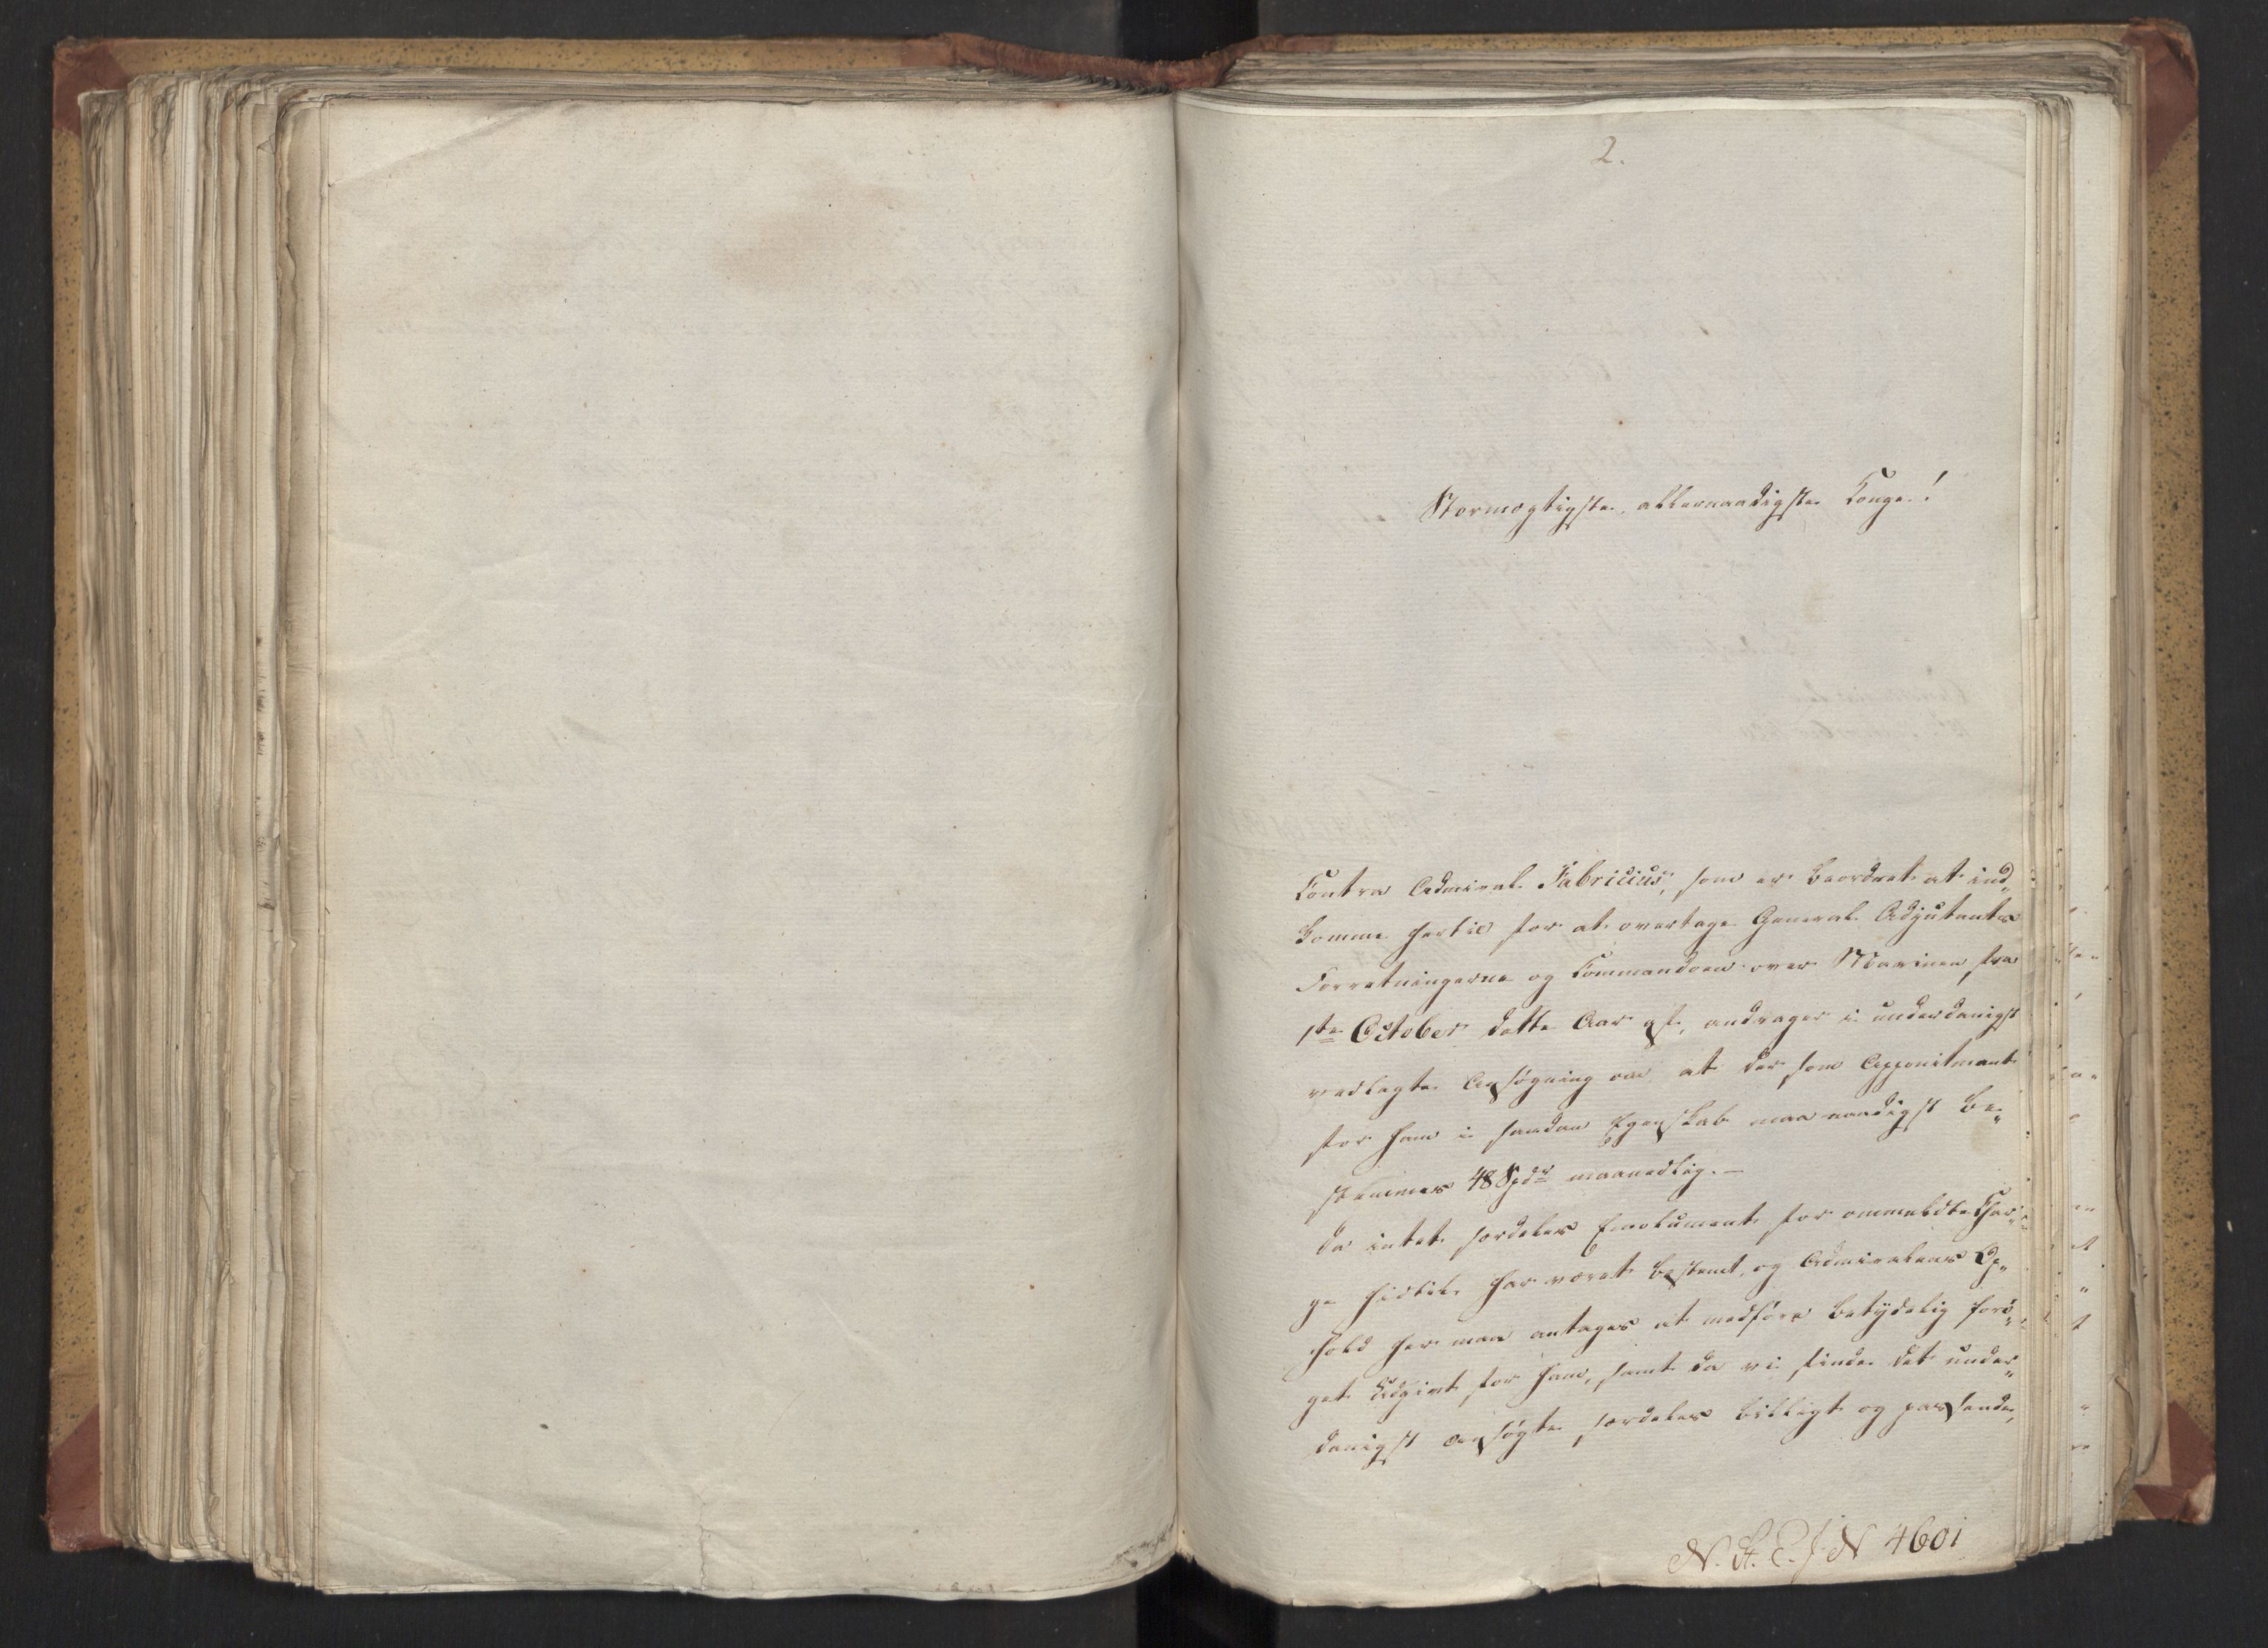 2.
Stormægtigste, allernaadigste Konge!
Contra Admiral Fabricius, som er beordret at ind„
komme hertil for at overtage General Adjutants
Forretningerne og Commandoen over Marinen fra
1ste October dette Aar af, andrager i underdanigst
vedlagte Ansøgning om, at der som Appointment
for ham i saadan Egenskab maa naadigst be„
stemmes 48 Spdr maanedlig. —
Da intet særdeles Emolument for ommeldte Char„
ge hidtil har været bestemt, og Admiralens Op„
hold her maa antages at medføre betydelig forø„
get Udgivt for ham, samt da vi finde det under„
danigst ansøgte særdeles billigt og passende,
N. A. E. J. N 4601